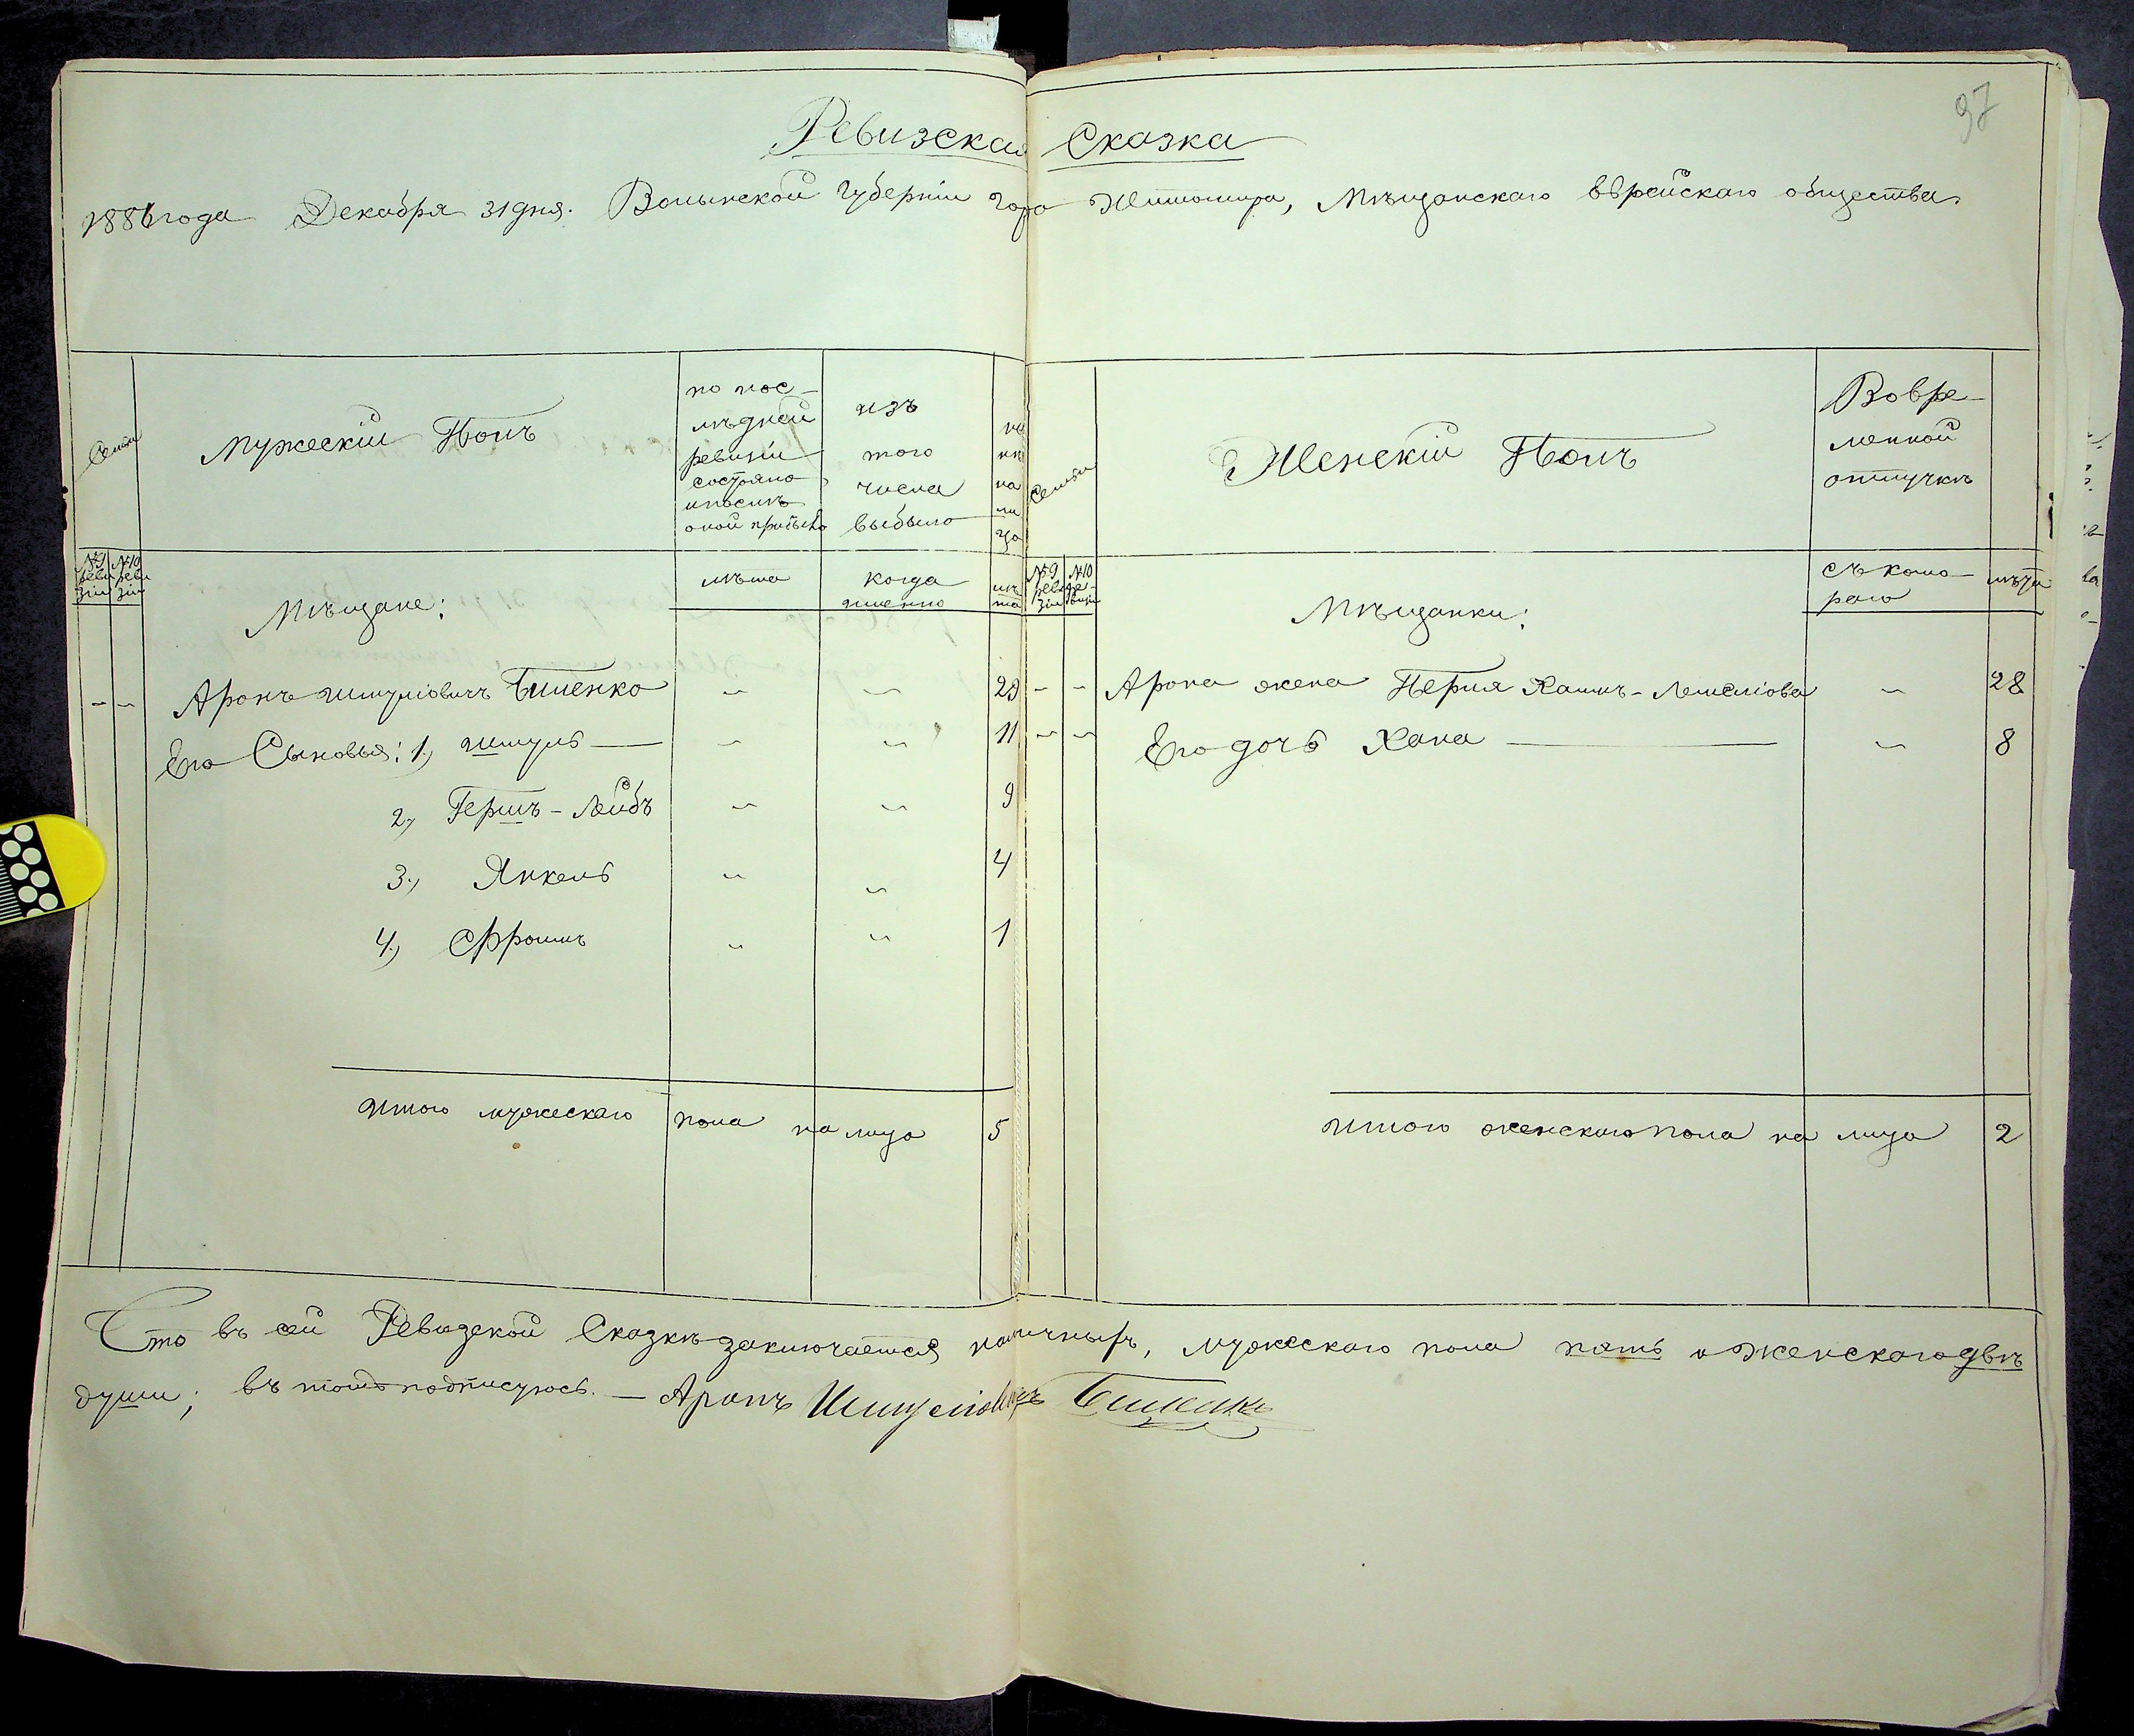 97
Ревизская Сказка
1886 года Декабря 31 дня. Волынской Губерніи города Житомира, Мѣщанскаго Еврейскаго общества
Семьи
Мужескій Полъ
по пос-
лѣдней
ревизіи
состояло
и послѣ
оной прибыло
изъ
того
числа
выбыло
на
ли
цо
№9 реви зіи
№10 реви зіи
лѣта
когда
именно
лѣ
та
Мѣщане:
Аронъ Шмуліовичъ Биленко " " 29
Его Сыновья: 1., Шмуль — " " 11
2., Гершъ-Лейбъ " " 9
3., Янкель " " 4
4., Фроимъ " " 1
Итого мужескаго пола на лицо 5
Семьи
Женскій Полъ
Вовре-
менной
отлучкѣ
№9 реви зіи
№10 ре- визіи
съ кото-
раго
лѣта
Мѣщанки:
Арона жена Перля Хаимъ- " 28
Его дочь Хана — " 8
Итого женскаго пола на лицо 2
Что въ сей Ревизской Сказкѣ заключается наличныхъ, мужескаго пола пять и женскаго двѣ
души; въ томъ подписуюсь. — Аронъ Шмуліовичъ Биленко